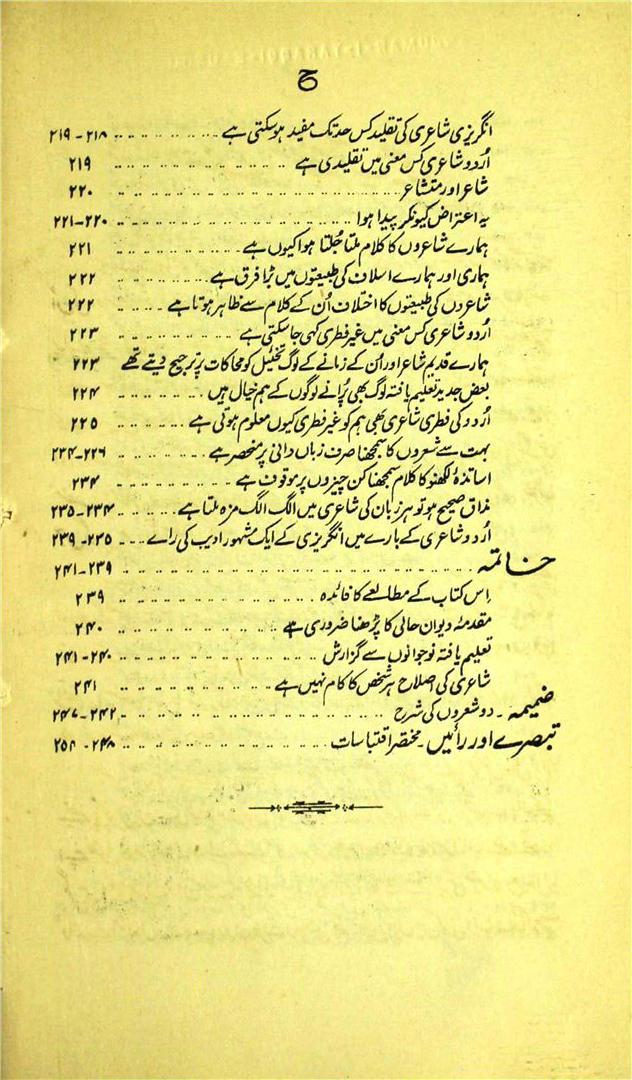 ح
انگریزی شاعری کی تقلید کس حد تک مفید ہوسکتی ہے ۲۱۸-۲۱۹
اُردو شاعری کس معنی میں تقلیدی ہے ۲۱۹
شاعر اور متشاعر ۲۲۰
یہ اعتراض کیونکر پیدا ہوا ۲۲۰-۲۲۱
ہمارے شاعروں کا کلام ملتا جُلتا ہوا کیوں ہے ۲۲۱
ہماری اور ہمارے اسلاف کی طبیعتوں میں بڑا فرق ہے ۲۲۲
شاعروں کی طبیعتوں کا اختلاف اُن کے کلام سے ظاہر ہوتا ہے ۲۲۲
اُردو شاعری کس معنی میں غیر فطری کہی جاسکتی ہے ۲۲۳
ہمارے قدیم شاعر اور اُن کے زمانے کے لوگ تخئیل کو محاکات پر ترجیح دیتے تھے ۲۲۳
بعض جدید تعلیم یافتہ لوگ بھی پُرانے لوگوں کے ہم خیال ہیں ۲۲۴
اُردو کی فطری شاعری بھی ہم کو غیر فطری کیوں معلوم ہوتی ہے ۲۲۵
بہت سے شعروں کا سمجھنا صرف زباں دانی پر منحصر ہے ۲۲۶-۲۳۴
اساتذۂ لکھنؤ کا کلام سمجھنا کن چیزوں پر موقوف ہے ۲۳۴
مذاق صحیح ہو تو ہر زبان کی شاعری میں الگ الگ مزہ ملتا ہے ۲۳۴-۲۳۵
اُردو شاعری کے بارے میں انگریزی کے ایک مشہور ادیب کی راے ۲۳۵-۲۳۹
خاتمہ ۲۳۹-۲۴۱
اِس کتاب کے مطالعے کا فائدہ ۲۳۹
مقدمۂ دیوان حالی کا پڑھنا ضروری ہے ۲۴۰
تعلیم یافتہ نوجوانوں سے گزارش ۲۴۰-۲۴۱
شاعری کی اصلاح ہر شخص کا کام نہیں ہے ۲۴۱
ضمیمہ - دو شعروں کی شرح ۲۴۲-۲۴۷
تبصرے اور رائیں - مختصر اقتباسات ۲۴۸-